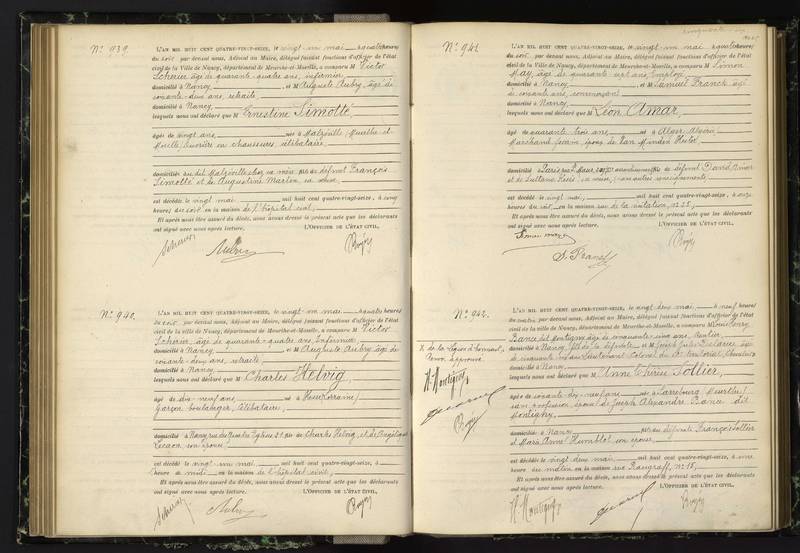 N° 939.
L'AN MIL HUIT CENT QUATRE-VINGT-SEIZE, le vingt-un mai à quatre heures
du soir, par devant nous, Adjoint au Maire, délégué faisant fonctions d'officier de l'état
civil de la Ville de Nancy, département de Meurthe-et-Moselle, a comparu M Victor
Scherier âgé de quarante-quatre ans, infirmier,
domicilié à Nancy, et M Auguste Aubry, âgé de
soixante-deux ans, retraité,
domicilié à Nancy,
lesquels nous ont déclaré que M Ernestine Simotté,
âgée de vingt ans, née à Malzéville, Meurthe-et-
Moselle, ouvrière en chaussures, célibataire,
domiciliée au dit Malzéville chez sa mère, fille de défunt François
Simotté et de Augustine Marton, sa veuve,
est décédée le vingt mai, mil huit cent quatre-vingt-seize, à cinq
heures du soir en la maison de l'hôpital civil,
Et après nous être assuré du décès, nous avons dressé le présent acte que les déclarants
ont signé avec nous après lecture. L'OFFICIER DE L'ÉTAT CIVIL,
Scherier Aubry
N° 940.
L'AN MIL HUIT CENT QUATRE-VINGT-SEIZE, le vingt-un mai à quatre heures
du soir, par devant nous, Adjoint au Maire, délégué faisant fonctions d'officier de l'état
civil de la ville de Nancy, département de Meurthe-et-Moselle, a comparu M Victor
Scherier, âgé de quarante-quatre ans, infirmier,
domicilié à Nancy, et M Auguste Aubry âgé de
soixante-deux ans, retraité,
domicilié à Nancy,
lesquels nous ont déclaré que M Charles Helvig,
âgé de dix-neuf ans, né à (Lorraine)
Garçon boulanger, célibataire,
domicilié à Nancy, rue des Quatre Eglises, fils de Charles Helvig, et de Angélique
son épouse,
est décédé le vingt-un mai, mil huit cent quatre-vingt-seize, à
heure de midi en la maison de l'hôpital civil,
Et après nous être assuré du décès, nous avons dressé le présent acte que les déclarants
ont signé avec nous après lecture. L'OFFICIER DE L'ÉTAT CIVIL,
Scherier Aubry
N° 941.
L'AN MIL HUIT CENT QUATRE-VINGT-SEIZE, le vingt-un mai à quatre heures
du soir, par devant nous, Adjoint au Maire, délégué faisant fonctions d'officier de l'état
civil de la Ville de Nancy, département de Meurthe-et-Moselle, a comparu M Simon
May, âgé de quarante-sept ans, employé
domicilié à Nancy, et M Samuel Franck âgé
de soixante ans, commerçant
domicilié à Nancy,
lesquels nous ont déclaré que M Léon Amar,
âgé de quarante-trois ans, né à Alger, Algérie,
Marchand forain, époux de
domicilié à Paris fils de défunt David Amar
et de Sultana sa veuve, sans autres renseignements,
est décédé le vingt mai, mil huit cent quatre-vingt-seize, à onze
heures du soir en la maison rue de la Visitation, n° 25,
Et après nous être assuré du décès, nous avons dressé le présent acte que les déclarants
ont signé avec nous après lecture. L'OFFICIER DE L'ÉTAT CIVIL,
Simon may
S. Franck
N° 942.
L'AN MIL HUIT CENT QUATRE-VINGT-SEIZE, le vingt-deux mai, à neuf heures
du matin, par devant nous, Adjoint au Maire, délégué faisant fonctions d'officier de l'état
civil de la ville de Nancy, département de Meurthe-et-Moselle, a comparu M Louis Henry
Bance dit Montigny âgé de cinquante-cinq ans, rentier,
domicilié à Nancy, fils de la défunte, et M
Lieutenant Colonel du territorial,
domicilié à Nancy,
lesquels nous ont déclaré que M Anne Thérèse Sollier,
âgée de soixante-dix-neuf ans, née à Sarrebourg (Meurthe)
sans profession épouse de Joseph Alexandre Bance dit
Montigny,
domiciliée à Nancy fille de défunts François Sollier
et Marie Anne Humblot, son épouse,
est décédée le vingt-deux mai, mil huit cent quatre-vingt-seize, à une
heure du matin en la maison rue Raugraff, n° 15,
Et après nous être assuré du décès, nous avons dressé le présent acte que les déclarants
ont signé avec nous après lecture. L'OFFICIER DE L'ÉTAT CIVIL,
H. Montigny